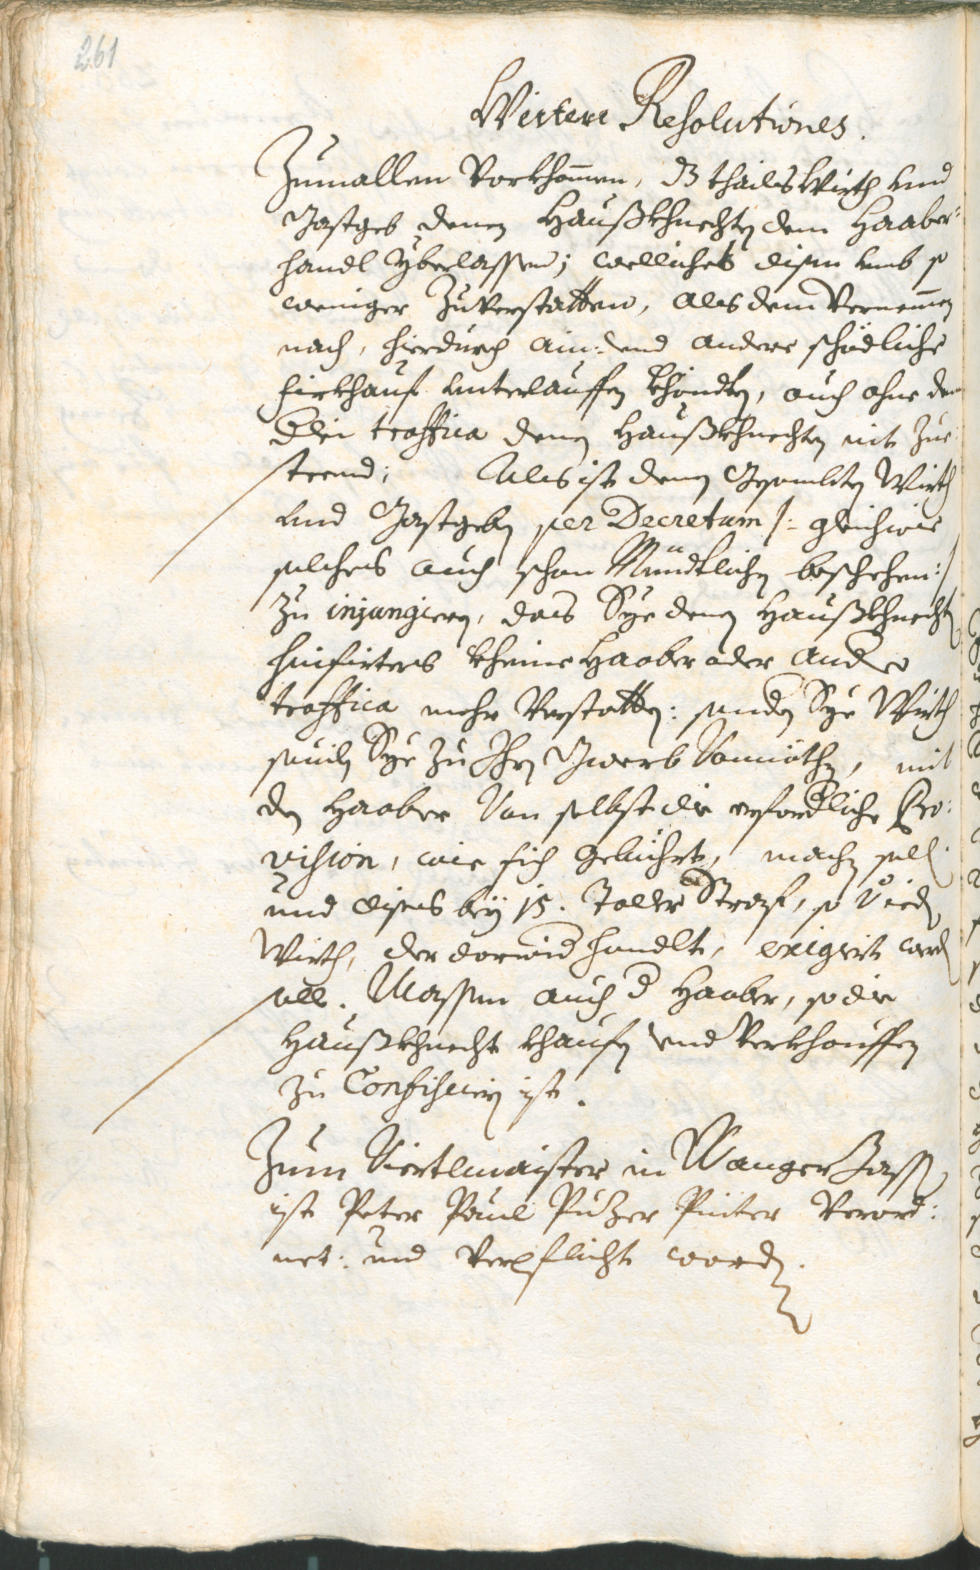 261
Weitere Resolutiones.
Zumallen Vorkhom̄en, dz thails Würth und
Gastgeb denen Haußkhnechten den Haaber=
handl yberlassen; welliches disen umb so
weniger zuverstatten, als dem Vernem̄en
nach, hierdurch ain: und andere schödliche
Firkhauf unterlauffen khöndten, auch ohne dem
dlei traffica denen Haußkhnechten nit zue=
steend; Als ist denen Gesambten Würth
und Gastgeben per Decretum /: gleichwie
solches auch schon Mündtlichen beschehen :/
zu injungiern, das Sye denen Haußkhnechten
hinfirters kheine Haaber oder andere
traffica mehr Verstatten: sonder Sye Würth
sovil Sye zu Ihren Gwerb Vonnöthen, mit
den Haaber Von selbst die erforderliche Pro=
vision, wie sich gebührt, machen sollen
und dises bey 15. Taller Straf, so Vieden
Würth, der darwider handlt, exigiert werden
solle. Massen auch der Haaber, so die
Haußkhnecht khaufen und Verkhauffen
zu Confisciern ist.
Zum Viertlmaister in Wanger Gassen
ist Peter Paul Puzer Pinter Verord=
net: und Verpflicht worden.